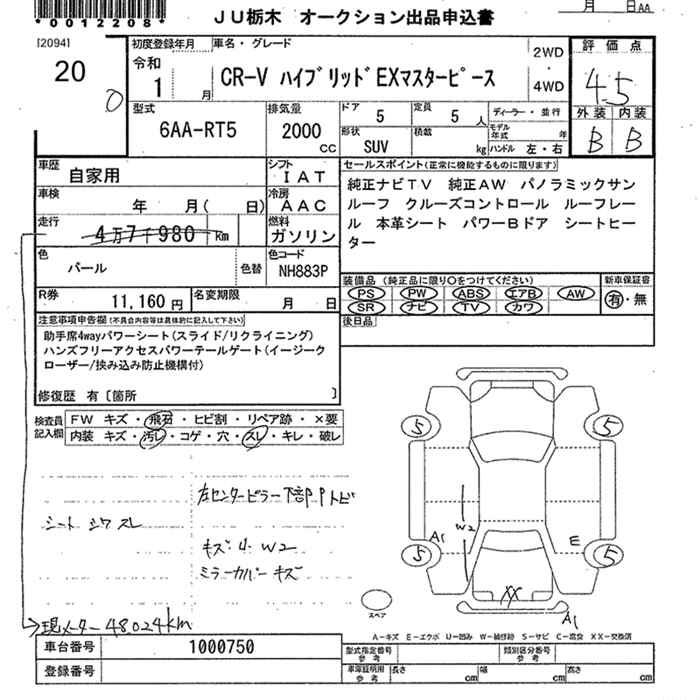 *0012208*
JU栃木 オークション出品申込書
月 日 AA
[2094]
20
0
初度登録年月
令和
1 月
車名・グレード
CR-V ハイブリッドEXマスターピース
2WD
・
4WD
評価点
4.5
外装 内装
B B
型式
6AA-RT5
排気量
2000
cc
ドア
5
定員
5 人
ディーラー・並行
形状
SUV
積載
kg
モデル年式 年
ハンドル 左・右
車歴
自家用
シフト
IAT
車検
年 月( 日)
冷房
AAC
走行
4万7千980 Km
燃料
ガソリン
色
パール
色替
色コード
NH883P
R券
11,160 円
名変期限
月 日
セールスポイント(正常に機能するものに限ります)
純正ナビTV 純正AW パノラミックサン
ルーフ クルーズコントロール ルーフレー
ル 本革シート パワーBドア シートヒー
ター
装備品 (純正品に限り○をつけてください)
PS PW ABS エアB AW
SR ナビ TV カワ
新車保証書
有・無
後日品
注意事項申告欄(不具合内容等は具体的に記入して下さい)
助手席4wayパワーシート(スライド/リクライニング)
ハンズフリーアクセスパワーテールゲート(イージーク
ローザー/挟み込み防止機構付)
修復歴 有〔箇所 〕
検査員
記入欄
FW キズ・飛石・ヒビ割・リペア跡・×要
内装 キズ・汚レ・コゲ・穴・スレ・キレ・破レ
左センターピラー下部 P トビ
シート シワ スレ
キズ・U・W2
ミラーカバー キズ
現メーター 48024km
5
5
5
5
W2
A1
E
XX
A1
スペア
A-キズ E-エクボ U-凹み W-補修跡 S-サビ C-腐食 XX-交換済
車台番号
1000750
登録番号
型式指定番号
参考
類別区分番号
参考
車庫証明用
参考
長さ cm
幅 cm
高さ cm